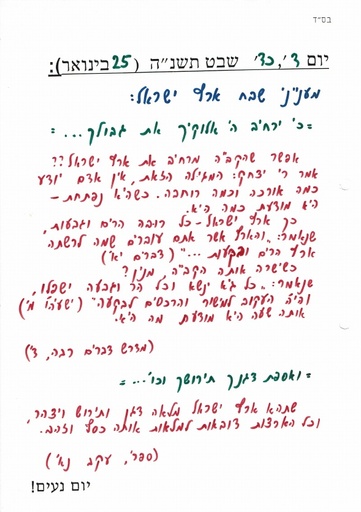 בס״ד
יום ד׳, כד׳ שבט תשנ״ה (25 בינואר):
מעניני שבח ארץ ישראל:
= כי ירחיב ה׳ אלוקיך את גבולך... =
אפשר שהקב״ה מרחיב את ארץ ישראל??
אמר ר׳ יצחק: המגילה הזאת, אין אדם יודע
כמה אורכה וכמה רוחבה. כשהיא נפתחת –
היא מודעת כמה היא.
כך ארץ ישראל – כל רובה הרים וגבעות,
שנאמר: ״והארץ אשר אתם עוברים שמה לרשתה
ארץ הרים ובקעות...״ (דברים יא׳)
כשישרה אותה הקב״ה, מנין?
שנאמר: ״כל גיא ינשא וכל הר וגבעה ישפלו,
והיה העקוב למישור והרכסים לבקעה״ (ישעיהו מ׳)
אותה שעה היא מודעת מה היא.
(מדרש דברים רבה, ד׳)
= ואספת דגנך תירושך וכו׳... =
שתהא ארץ ישראל מלאה דגן ותירוש ויצהר,
וכל הארצות דובאות למלאות אותה כסף וזהב.
(ספרי, עקב נא׳)
יום נעים!